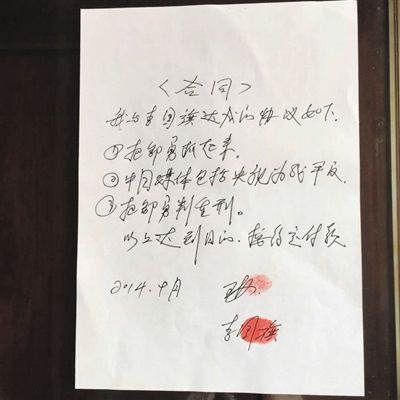 《合同》
我与李国旗达成的协议如下.
①把邹勇抓起来.
②中国媒体包括央视为我平反.
③把邹勇判重刑。
以上达到目的.按约定付款
2014. 月
李国旗